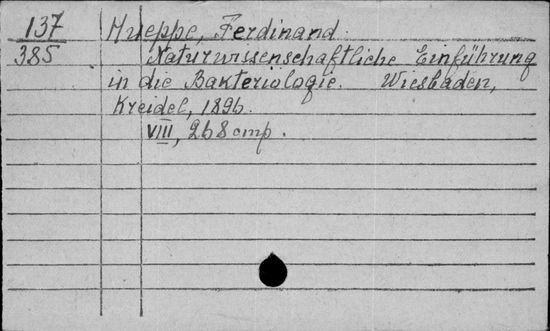 137 Hueppe, Ferdinand.
385 Naturwissenschaftliche Einführung
in die Bakteriologie. Wiesbaden,
Kreidel, 1896.
VIII, 268 cmp.